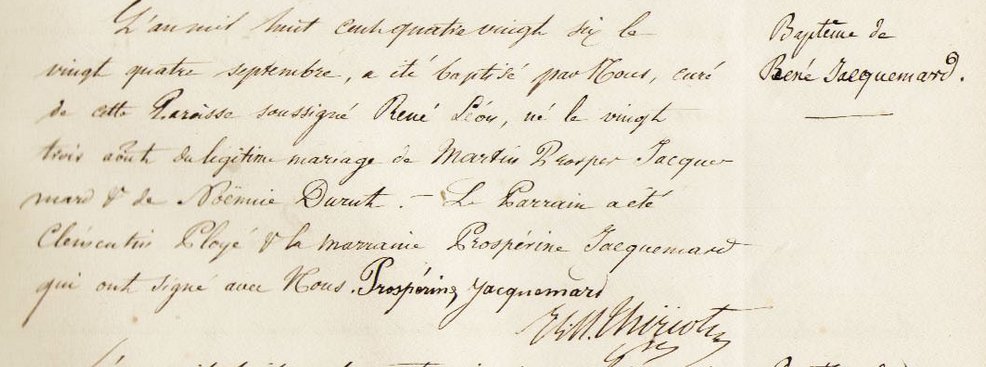 L'an mil huit cent quatre vingt six le
vingt quatre septembre, a été baptisé par Nous, curé
de cette Paroisse soussigné René Léon, né le vingt
trois août du légitime mariage de Martin Prosper Jacque-
mard & de Noëmie Durut. – Le Parrain a été
Clémentin Ployé & la marraine Prospérine Jacquemard
qui ont signé avec Nous. Prospérine Jacquemard
Thiriot
Baptême de
René Jacquemard.